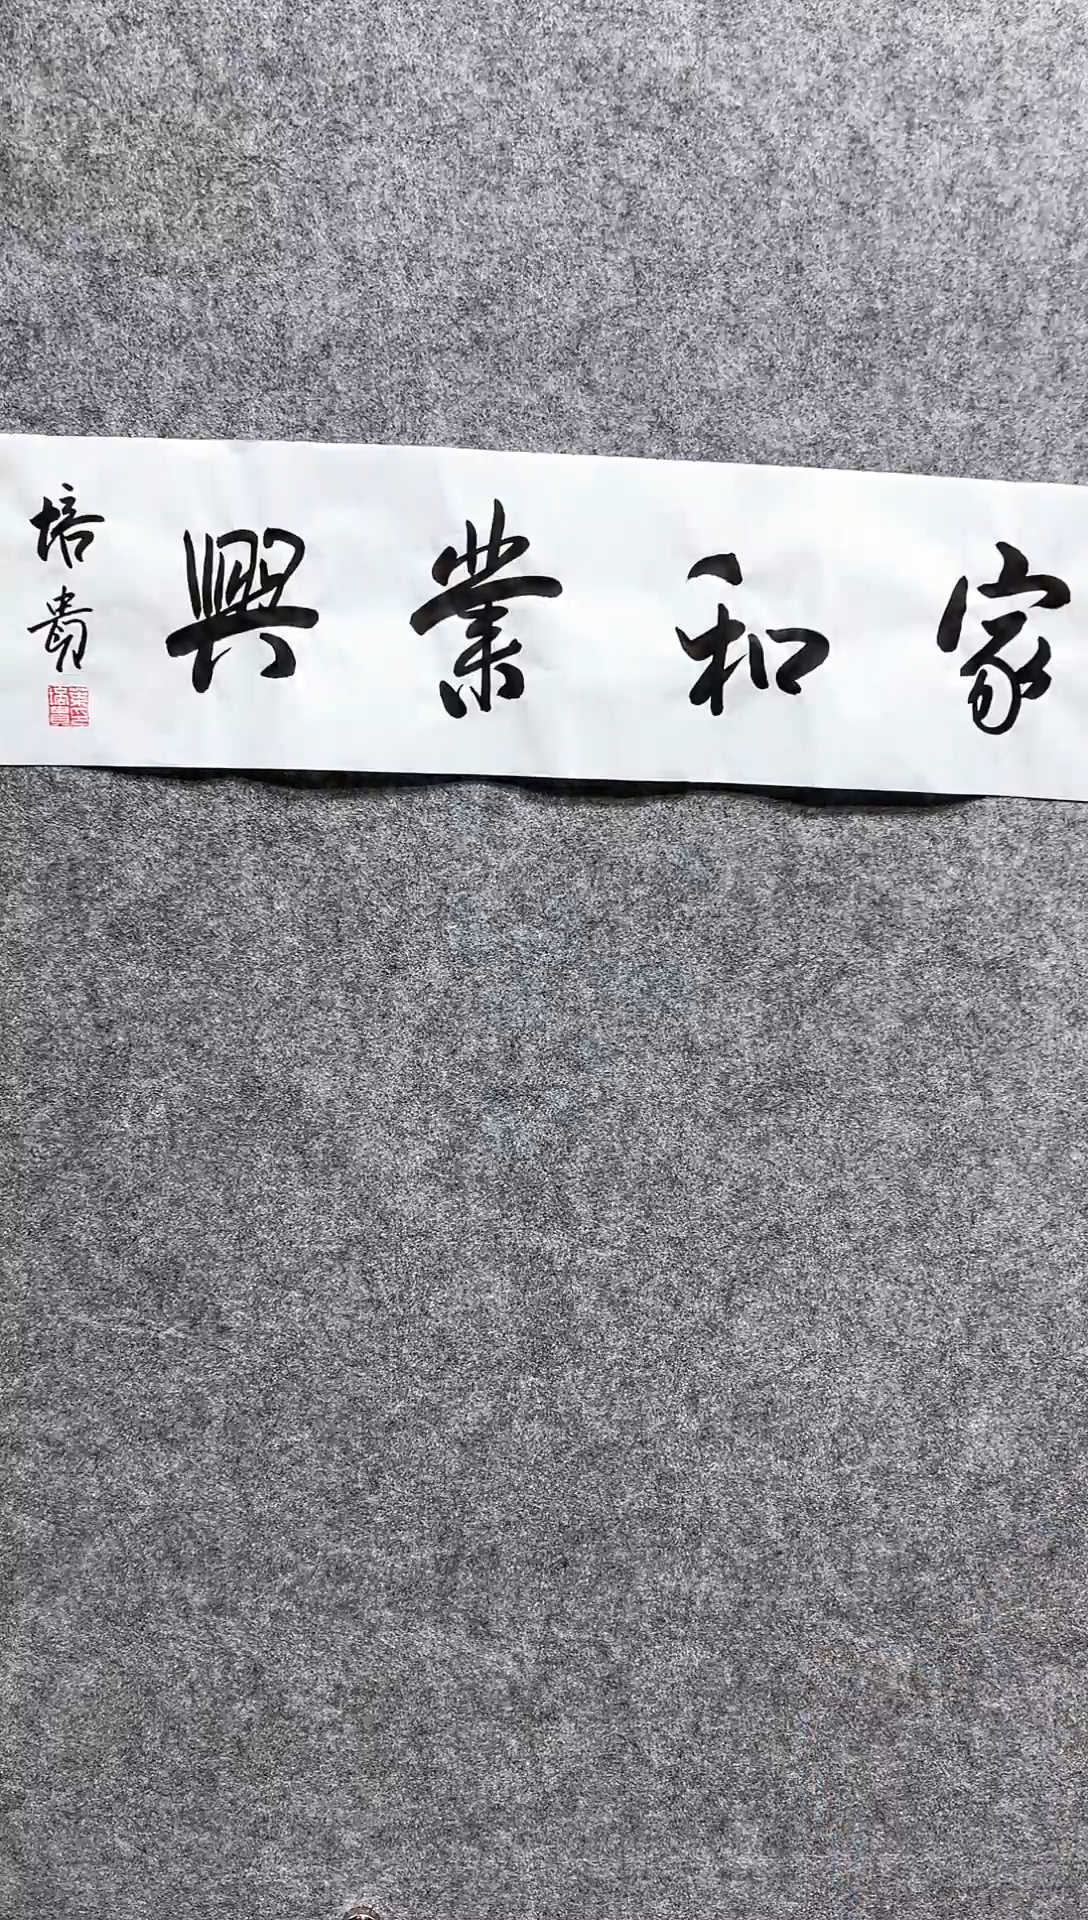 家和業興
培貴